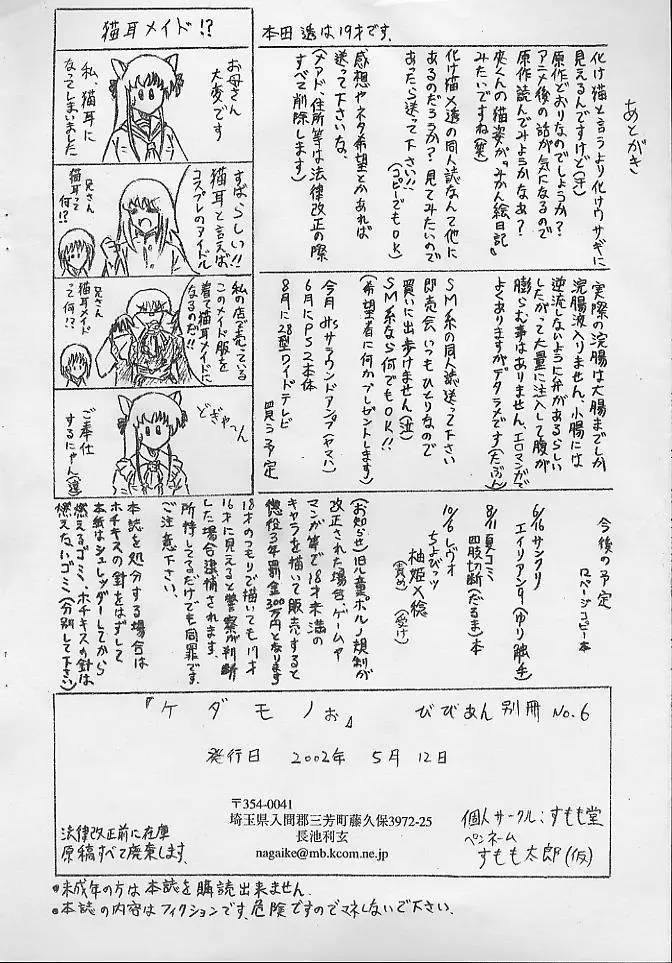 本田 透は19才です.
あとがき
化け猫と言うより化けウサギに
見えるんですけど(汗)
原作どおりなのでしょうか?
アニメ後の話が気になるので
原作読んでみようかなあ?
夾くんの猫姿が『みかん絵日記』
みたいですね(笑)
化け猫×透の同人誌なんて他に
あるのだろうか? 見てみたいので
あったら送って下さい!!
(コピーでもOK)
感想やネタ希望とかあれば
送って下さいな。
(メアド、住所等は法律改正の際
すべて削除します)
猫耳メイド!?
お母さん
大変です
私、猫耳に
なってしまいました
すばらしい!!
猫耳と言えば
コスプレのアイドル
兄さん
猫耳って
何!?
私の店で売っている
このメイド服を
着て猫耳メイドに
なるのだ!!
兄さん
猫耳メイド
って何!?
どぎゃーん
ご奉仕
するにゃん(違)
実際の浣腸は大腸までしか
浣腸液入りません、小腸には
逆流しないように弁があるらしい
したがって大量に注入して腹が
膨らむ事はありません、エロマンガで
よくありますがデタラメです(たぶん)
SM系の同人誌送って下さい
即売会いつもひとりなので
買いに出歩けません(泣)
SM系なら何でもOK!!
(希望者に何かプレゼントします)
今月 サラウンドアンプ(ヤマハ)
6月にPS2本体
8月に28型ワイドテレビ
買う予定
今後の予定
ロページコピー本
6/16サンクリ
エイリアン9(ゆり触手)
8/11夏コミ
四肢切断(だるま)本
10/6レヴォ
ちょびっツ
柚姫×稔
(責め) (受け)
(お知らせ)児童ポルノ規制が
改正された場合、ゲームや
マンガ等で18才未満の
キャラを描いて販売すると
懲役3年罰金300万円となります
18才のつもりで描いても17才
16才に見えると警察が判断
した場合逮捕されます.
所持してるだけでも同罪です.
ご注意下さい。
本誌を処分する場合は
ホチキスの針をはずして
本紙はシュレッダーしてから
燃えるゴミ、ホチキスの針は
燃えないゴミ(分別して下さい)
『ケダモノぉ』 びびあん別冊 No.6
発行日 2002年 5月 12日
〒354-0041
埼玉県入間郡三芳町藤久保3972-25
長池利玄
nagaike@mb.kcom.ne.jp
法律改正前に在庫
原稿すべて廃棄します.
個人サークル:すもも堂
ペンネーム
すもも太郎(仮)
●未成年の方は本誌を購読出来ません.
●本誌の内容はフィクションです.危険ですのでマネしないで下さい.